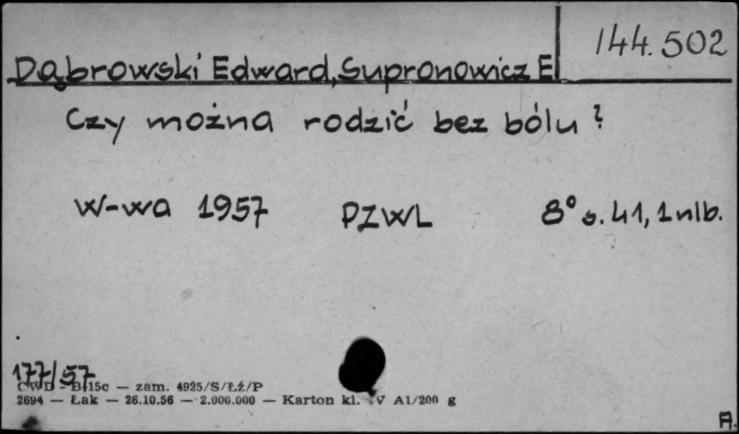 144.502
Dąbrowski Edward, Supronowicz E
Czy można rodzić bez bólu?
W-wa 1957 PZWL 8° s. 41, 1 nlb.
177/57
CWD - B/15c — zam. 4925/S/Łź/P
2694 — Łak — 26.10.56 — 2.000.000 — Karton kl. V A1/200 g
A.